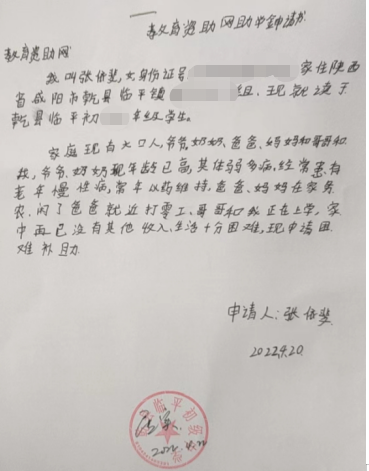 教育资助网助学申请书
教育资助网:
我叫张依斐,女,身份证号 家住陕西
省咸阳市乾县临平镇 组、现就读于
乾县临平初 年级学生。
家庭现有六口人,爷爷、奶奶、爸爸、妈妈和哥哥和
我,爷爷、奶奶现年龄已高,其体弱多病,经常患有
老年慢性病,常年以药维持,爸爸、妈妈在家务
农、闲了爸爸就近打零工、哥哥和我正在上学,家
中再已没有其他收入、生活十分困难,现申请困
难补助.
申请人:张依斐
2022.4.20
临平初级